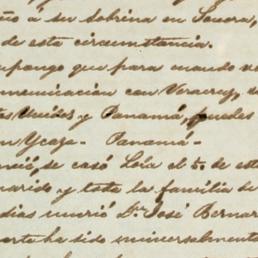 á su Sobrina en Sonora,
de esta circunstancia.
que para cuando
comunicacion con Veracruz,
Unidos y Panamá, puedes
Ycaza - Panamá -
se casó Lola el 5. de este
marido y toda la familia de
dias murió Dn. José Bernar
ha sido universalmente